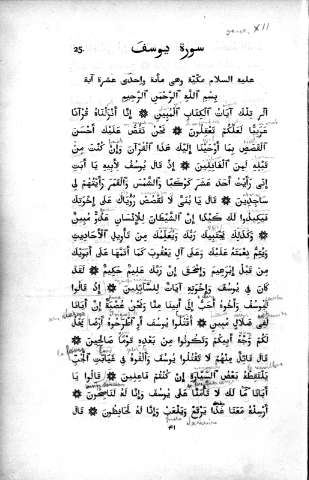 sura XII
25. سورة يوسف
عليه السلام مكّية وهى مائة واحدى عشرة آية
بِسْمِ اللّٰهِ الرَّحْمٰنِ الرَّحِيمِ
الر تِلْكَ آيَاتُ الْكِتَابِ الْمُبِينِ ۞ إِنَّا أَنْزَلْنَاهُ قُرْآنًا
عَرَبِيًّا لَعَلَّكُمْ تَعْقِلُونَ ۞ نَحْنُ نَقُصُّ عَلَيْكَ أَحْسَنَ
الْقَصَصِ بِمَا أَوْحَيْنَا إِلَيْكَ هٰذَا الْقُرْآنَ وَإِنْ كُنْتَ مِنْ
قَبْلِهِ لَمِنَ الْغَافِلِينَ ۞ إِذْ قَالَ يُوسُفُ لِأَبِيهِ يَا أَبَتِ
إِنِّى رَأَيْتُ أَحَدَ عَشَرَ كَوْكَبًا وَالشَّمْسَ وَالْقَمَرَ رَأَيْتُهُمْ لِى
سَاجِدِينَ ۞ قَالَ يَا بُنَىَّ لَا تَقْصُصْ رُؤْيَاكَ عَلَى إِخْوَتِكَ
فَيَكِيدُوا لَكَ كَيْدًا إِنَّ الشَّيْطَانَ لِلْإِنْسَانِ عَدُوٌّ مُبِينٌ
۞ وَكَذٰلِكَ يَجْتَبِيكَ رَبُّكَ وَيُعَلِّمُكَ مِنْ تَأْوِيلِ الْأَحَادِيثِ
وَيُتِمُّ نِعْمَتَهُ عَلَيْكَ وَعَلَى آلِ يَعْقُوبَ كَمَا أَتَمَّهَا عَلَى أَبَوَيْكَ
مِنْ قَبْلُ إِبْرٰهِيمَ وَإِسْحٰقَ إِنَّ رَبَّكَ عَلِيمٌ حَكِيمٌ ۞ لَقَدْ
كَانَ فِى يُوسُفَ وَإِخْوَتِهِ آيَاتٌ لِلسَّائِلِينَ ۞ إِذْ قَالُوا
لَيُوسُفُ وَأَخُوهُ أَحَبُّ إِلَى أَبِينَا مِنَّا وَنَحْنُ عُصْبَةٌ إِنَّ أَبَانَا
لَفِى ضَلَالٍ مُبِينٍ ۞ اُقْتُلُوا يُوسُفَ أَوِ اطْرَحُوهُ أَرْضًا يَخْلُ
لَكُمْ وَجْهُ أَبِيكُمْ وَتَكُونُوا مِنْ بَعْدِهِ قَوْمًا صَالِحِينَ ۞
قَالَ قَائِلٌ مِنْهُمْ لَا تَقْتُلُوا يُوسُفَ وَأَلْقُوهُ فِى غَيَابَتِ الْجُبِّ
يَلْتَقِطْهُ بَعْضُ السَّيَّارَةِ إِنْ كُنْتُمْ فَاعِلِينَ ۞ قَالُوا يَا
أَبَانَا مَا لَكَ لَا تَأْمَنَّا عَلَى يُوسُفَ وَإِنَّا لَهُ لَنَاصِحُونَ ۞
أَرْسِلْهُ مَعَنَا غَدًا يَرْتَعْ وَيَلْعَبْ وَإِنَّا لَهُ لَحَافِظُونَ ۞ قَالَ